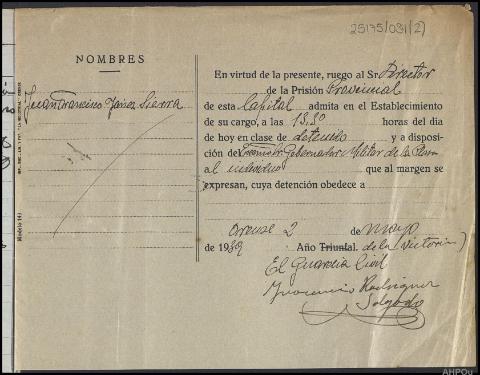 25175/031(2)
NOMBRES
Juan Francisco Yañez Sierra
En virtud de la presente, ruego al Sr. Director
de la Prisión Provincial
de esta Capital admita en el Establecimiento
de su cargo, a las 13,30 horas del día
de hoy en clase de detenido y a disposi-
ción del Excmo. Sr. Gobernador Militar de la Plaza
al individuo que al margen se
expresan, cuya detención obedece a
Orense 2 de Mayo
de 1939 Año Triunfal. de la (Victoria)
El Guardia Civil
Rodriguez
Salgado
Modelo 14
AHPOu